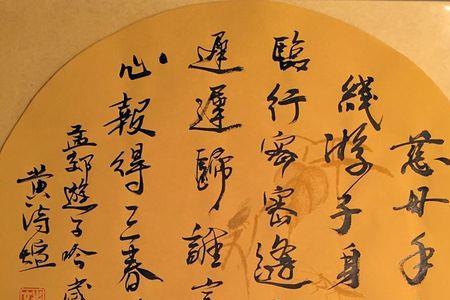 慈母手
綫游子身
臨行密密縫
遲遲歸誰言
心報得三春
孟郊遊子吟
黃